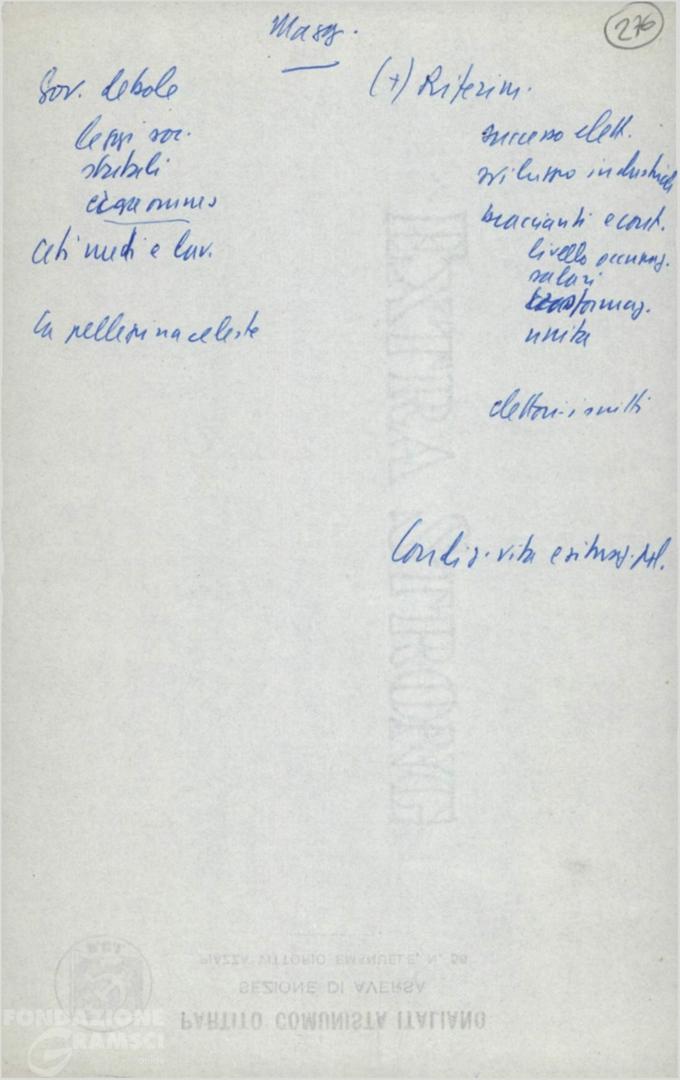 276
Masg.
Gov. debole
leggi soc.
stabili
Ceti medi e lav.
La pellegrina celeste
(+) Riferim.
successo elett.
sviluppo industriale
braccianti e cont.
livello occupaz.
salari
trasformaz.
unità
elettori-iscritti
Condiz. vita e situaz. pol.
EXTRA STRONG
PARTITO COMUNISTA ITALIANO
SEZIONE DI AVERSA
PIAZZA VITTORIO EMANUELE, N. 56
P.C.I.
FONDAZIONE
GRAMSCI